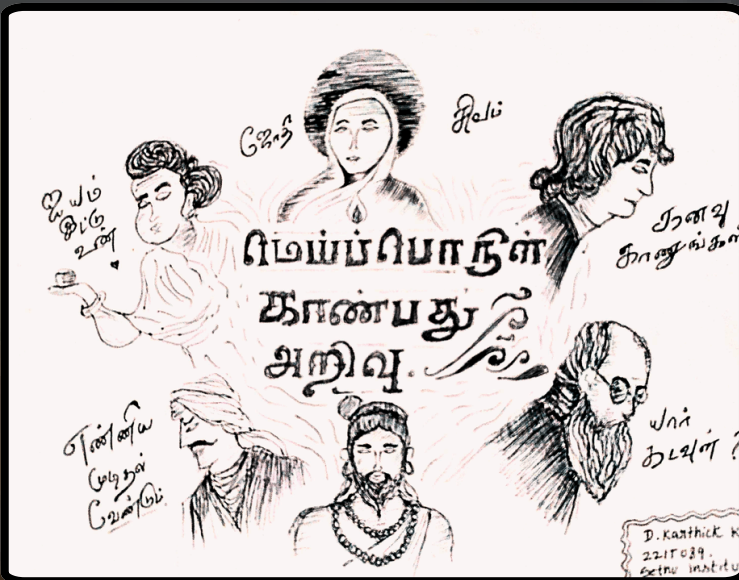 ஜோதி
சிவம்
ஐயம்
இட்டு
உண்
கனவு
காணுங்கள்
மெய்ப்பொருள்
காண்பது
அறிவு.
எண்ணிய
முடிதல்
வேண்டும்.
யார்
கடவுள் ?
D. Karthick K
221T089.
Sethu Institu